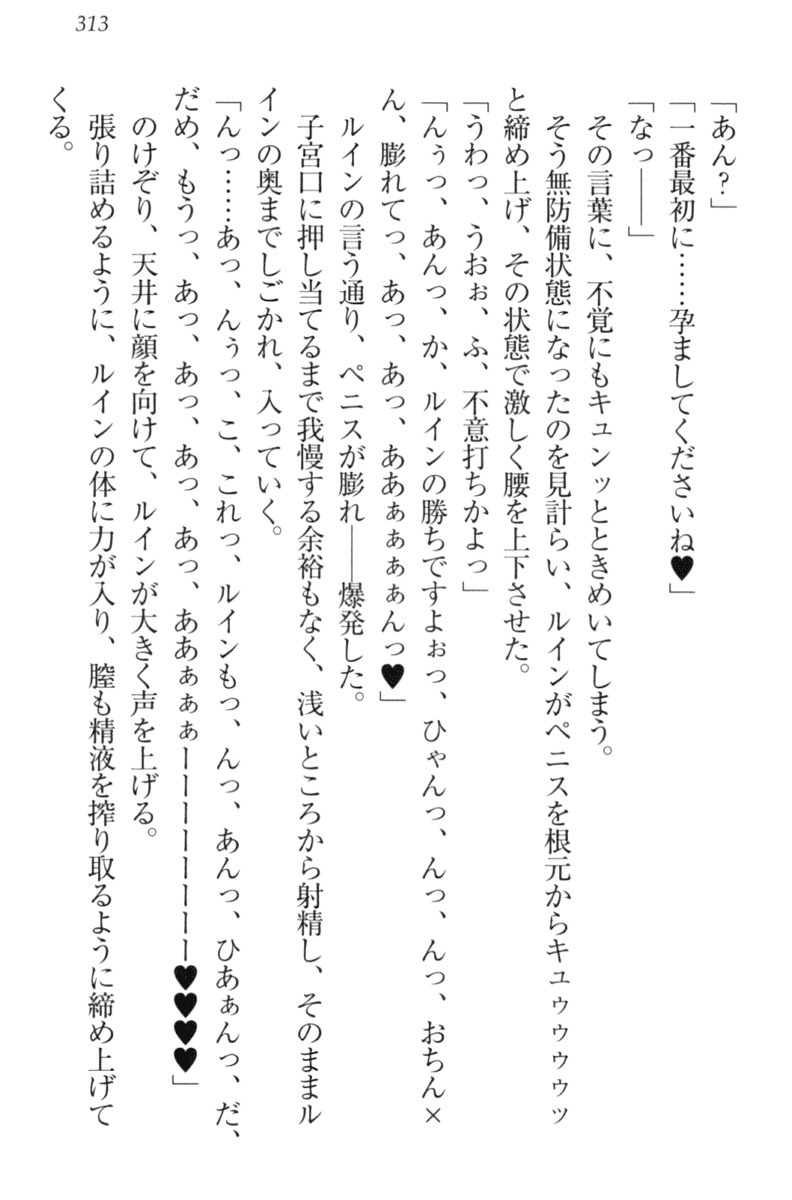 313
「あん？」
「一番最初に……孕ましてくださいね♥」
「なっ――」
その言葉に、不覚にもキュンッとときめいてしまう。
そう無防備状態になったのを見計らい、ルインがペニスを根元からキュゥゥゥゥッ
と締め上げ、その状態で激しく腰を上下させた。
「うわっ、うおぉ、ふ、不意打ちかよっ」
「んぅっ、あんっ、か、ルインの勝ちですよぉっ、ひゃんっ、んっ、んっ、おちん×
ん、膨れてっ、あっ、あっ、ああぁぁぁぁんっ♥」
ルインの言う通り、ペニスが膨れ――爆発した。
子宮口に押し当てるまで我慢する余裕もなく、浅いところから射精し、そのままル
インの奥までしごかれ、入っていく。
「んっ……あっ、んぅっ、こ、これっ、ルインもっ、んっ、あんっ、ひあぁんっ、だ、
だめ、もうっ、あっ、あっ、あっ、あっ、ああぁぁぁーーーーーーーー♥♥♥♥」
のけぞり、天井に顔を向けて、ルインが大きく声を上げる。
張り詰めるように、ルインの体に力が入り、膣も精液を搾り取るように締め上げて
くる。